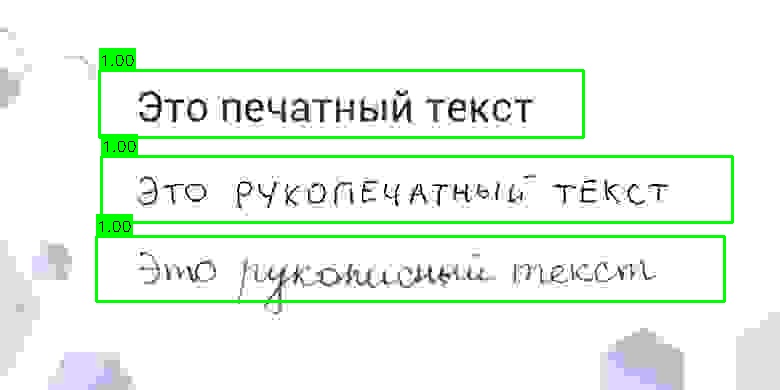 1.00
Это печатный текст
1.00
Это РУКОПЕЧАТНЫЙ ТЕКСТ
1.00
Это рукописный текст